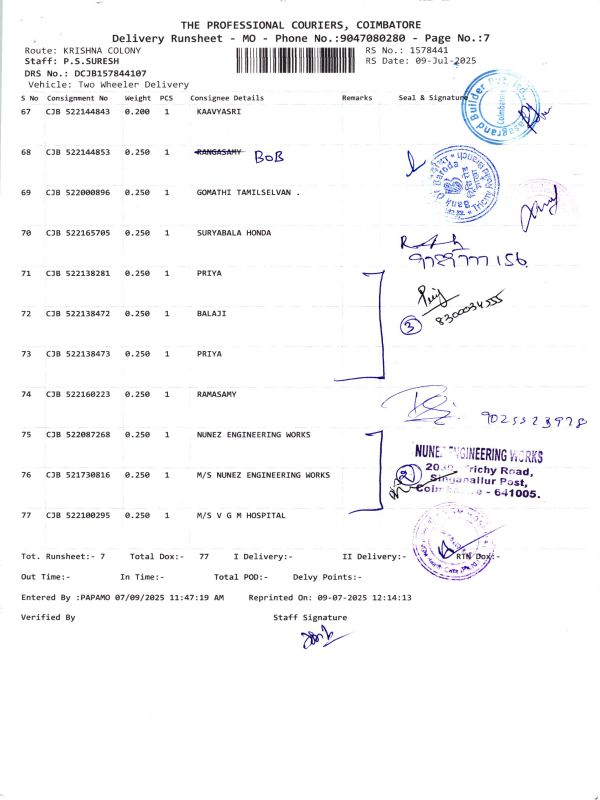 THE PROFESSIONAL COURIERS, COIMBATORE
Delivery Runsheet - MO - Phone No.:9047080280 - Page No.:7
Route: KRISHNA COLONY RS No.: 1578441
Staff: P.S.SURESH RS Date: 09-Jul-2025
DRS No.: DCJB157844107
Vehicle: Two Wheeler Delivery
S No Consignment No Weight PCS Consignee Details Remarks Seal & Signature
67 CJB 522144843 0.200 1 KAAVYASRI
68 CJB 522144853 0.250 1 RANGASAMY BOB
69 CJB 522000896 0.250 1 GOMATHI TAMILSELVAN .
70 CJB 522165705 0.250 1 SURYABALA HONDA
71 CJB 522138281 0.250 1 PRIYA
8300034555
72 CJB 522138472 0.250 1 BALAJI 3
73 CJB 522138473 0.250 1 PRIYA
74 CJB 522160223 0.250 1 RAMASAMY
75 CJB 522087268 0.250 1 NUNEZ ENGINEERING WORKS
NUNEZ ENGINEERING WORKS
Trichy Road,
76 CJB 521730816 0.250 1 M/S NUNEZ ENGINEERING WORKS 2 Singanallur Post,
Coimbatore - 641005.
77 CJB 522100295 0.250 1 M/S V G M HOSPITAL
Tot. Runsheet:- 7 Total Dox:- 77 I Delivery:- II Delivery:- RTN Dox:-
Out Time:- In Time:- Total POD:- Delvy Points:-
Entered By :PAPAMO 07/09/2025 11:47:19 AM Reprinted On: 09-07-2025 12:14:13
Verified By Staff Signature